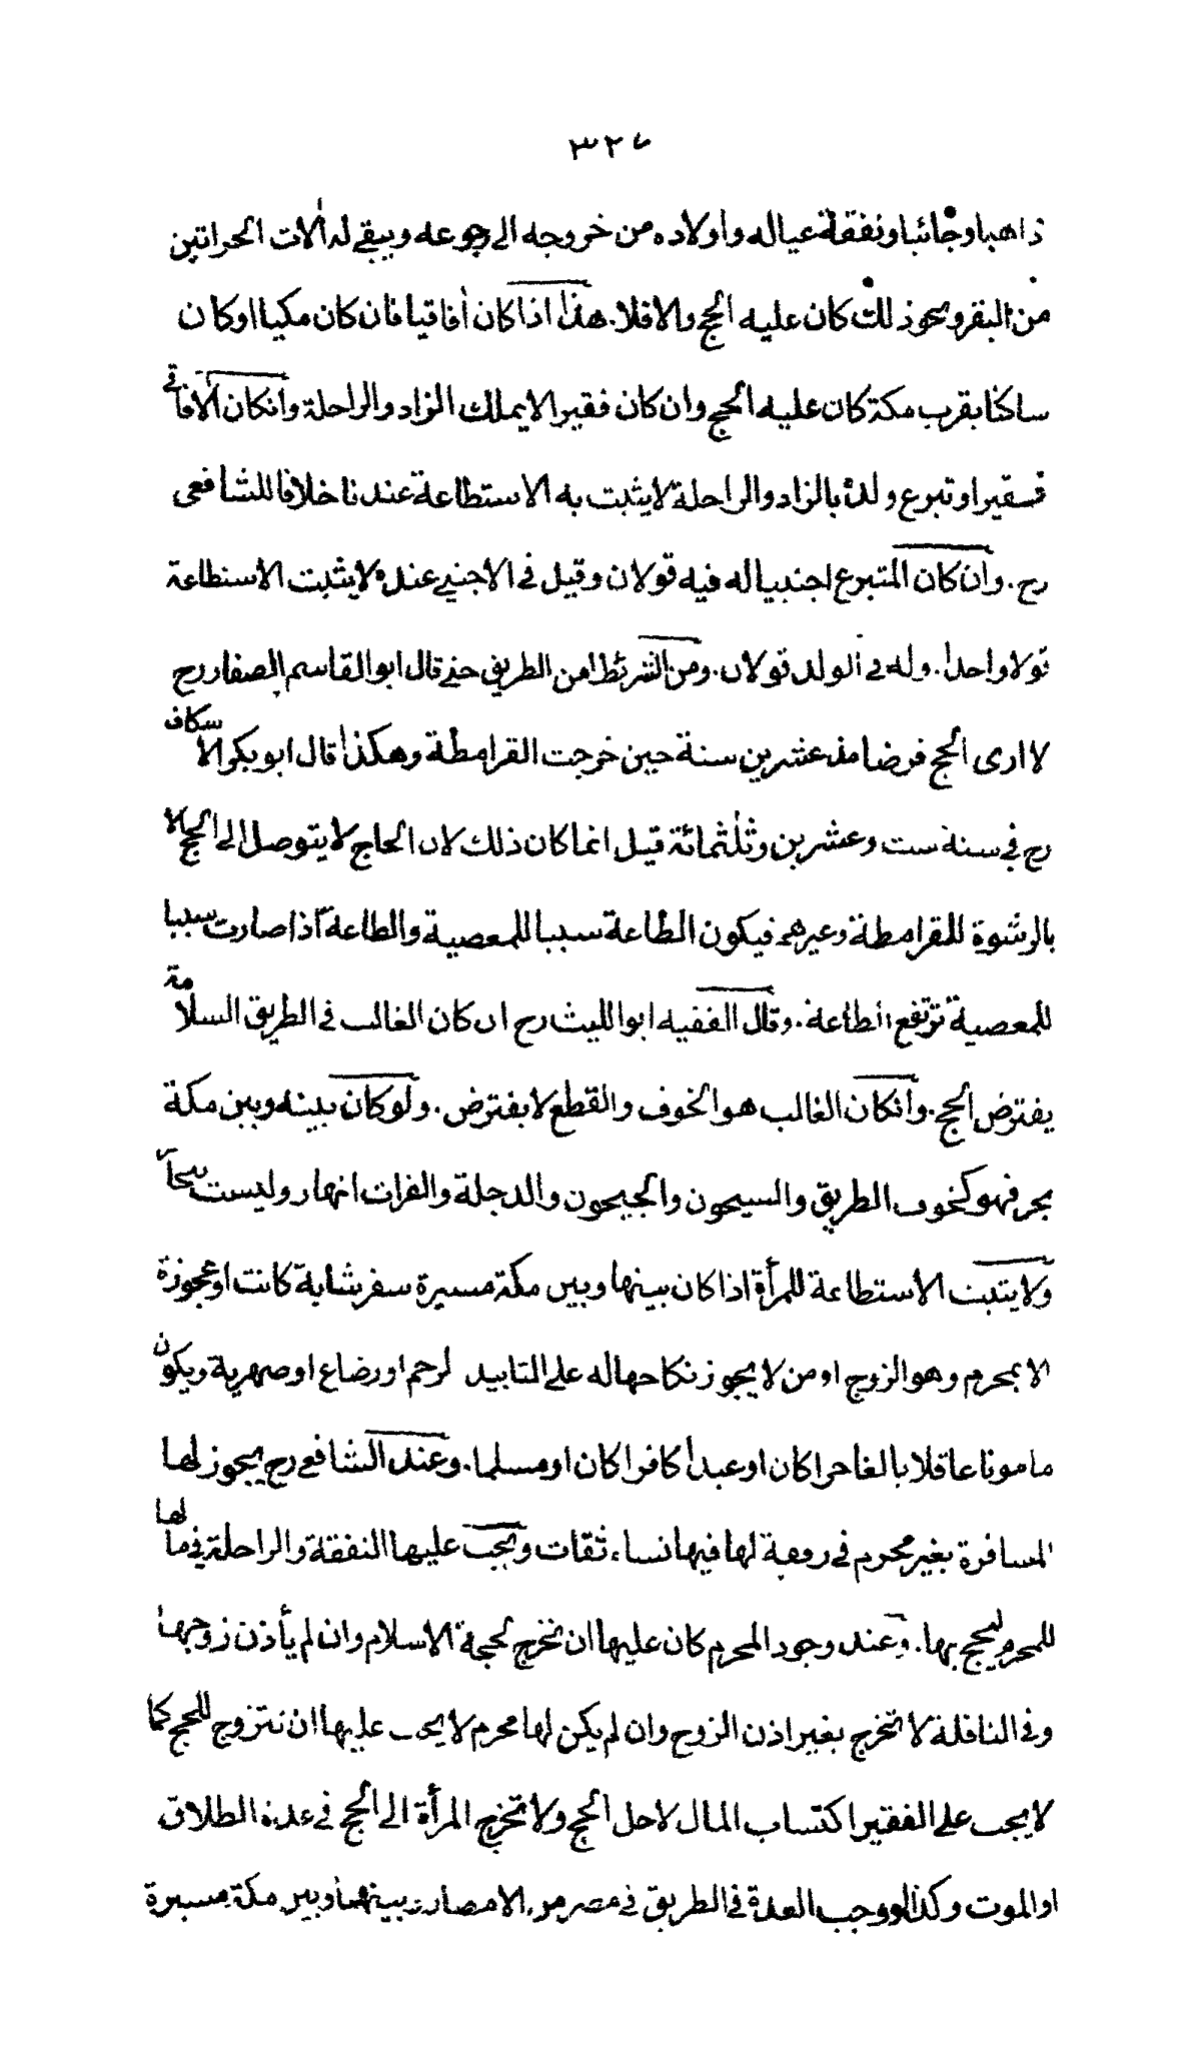 ٣٢٧
ذاهبا وجائبا ونفقة عياله واولاده من خروجه الى رجوعه ويبقى له آلات الحراثين
من البقر ونحو ذلك كان عليه الحج والا فلا. هذا اذا كان أفاقيا فان كان مكيا اوكان
ساكنا بقرب مكة كان عليه الحج وان كان فقيرا لا يملك الزاد والراحلة وانكان الأفاقي
فقيرا وتبرع ولده بالزاد والراحلة لا يثبت به الاستطاعة عندنا خلافا للشافعى
رح. وان كان المتبرع اجنبيا له فيه قولان وقيل في الاجنبي عنده لا يثبت الاستطاعة
قولا واحدا. وله في الولد قولان. ومن الشرئط امن الطريق حتى قال ابو القاسم الصفار رح
لا ارى الحج فرضا مذ عشرين سنة حين خرجت القرامطة وهكذا قال ابو بكر الاسكاف
رح في سنة ست وعشرين وثلثمائة قيل انما كان ذلك لان الحاج لا يتوصل الى الحج الا
بالرشوة للقرامطة وغيرهم فيكون الطاعة سببا للمعصية والطاعة اذا صارت سببا
للمعصية ترتفع الطاعة. وقال الفقيه ابو الليث رح ان كان الغالب في الطريق السلامة
يفترض الحج. وانكان الغالب هو الخوف والقطع لا يفترض. ولو كان بينه وبين مكة
بحر فهو كخوف الطريق والسيحون والجيحون والدجلة والفرات انهار وليست بحارا
ولا يثبت الاستطاعة للمرأة اذا كان بينها وبين مكة مسيرة سفر شابة كانت او عجوزة
الا بمحرم وهو الزوج او من لا يجوز نكاحها له على التابيد لرحم او رضاع او صهرية ويكون
مامونا عاقلا بالغا حرا كان او عبدا كافرا كان او مسلما. وعند الشافعي رح يجوز لها
المسافرة بغير محرم في رفقة لها فيها نساء ثقات ويجب عليها النفقة والراحلة في مالها
للمحرم ليحج بها. وعند وجود المحرم كان عليها ان تخرج لحجة الاسلام وان لم يأذن زوجها
وفي النافلة لا تخرج بغير اذن الزوج وان لم يكن لها محرم لا يجب عليها ان تتزوج للحج كما
لا يجب على الفقير اكتساب المال لاجل الحج ولا تخرج المرأة الى الحج في عدة الطلاق
او الموت وكذا لو وجب العدة في الطريق في مصر من الامصار بينها وبين مكة مسيرة